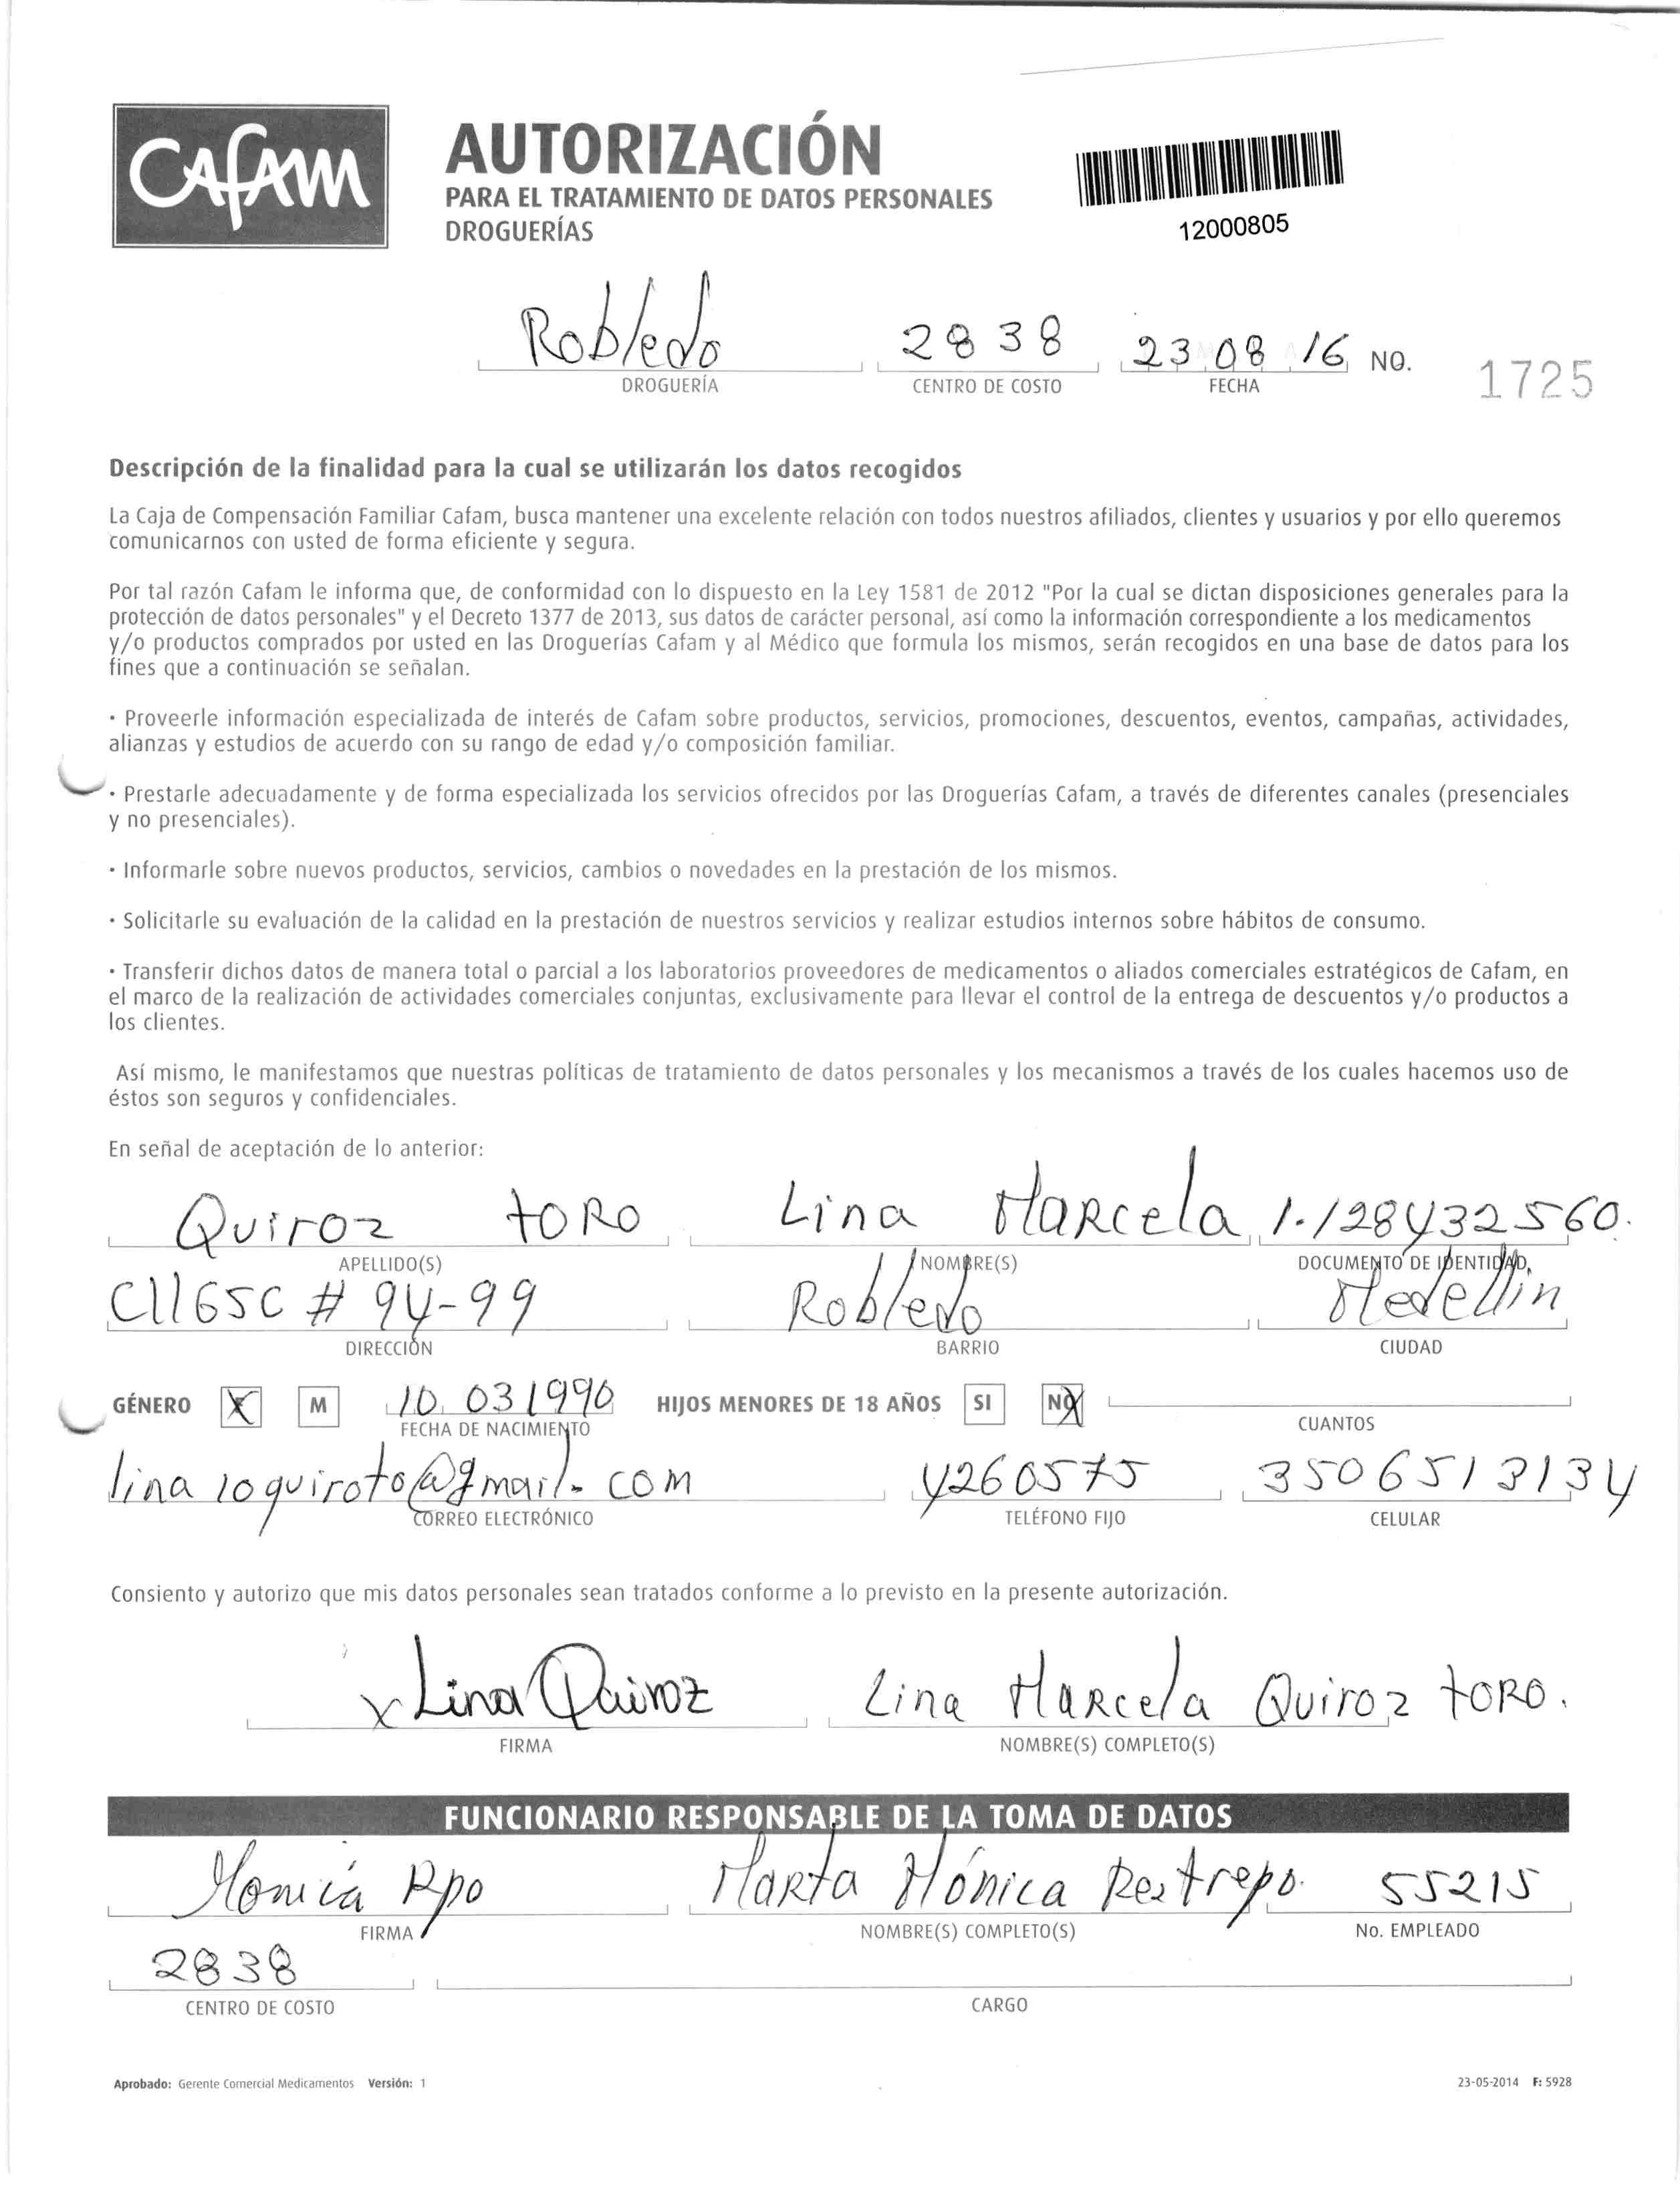 CAFAM
AUTORIZACIÓN
PARA EL TRATAMIENTO DE DATOS PERSONALES
DROGUERÍAS
12000805
Robledo 2838 23 08 16 NO. 1725
DROGUERÍA CENTRO DE COSTO FECHA
Descripción de la finalidad para la cual se utilizarán los datos recogidos
La Caja de Compensación Familiar Cafam, busca mantener una excelente relación con todos nuestros afiliados, clientes y usuarios y por ello queremos
comunicarnos con usted de forma eficiente y segura.
Por tal razón Cafam le informa que, de conformidad con lo dispuesto en la Ley 1581 de 2012 "Por la cual se dictan disposiciones generales para la
protección de datos personales" y el Decreto 1377 de 2013, sus datos de carácter personal, así como la información correspondiente a los medicamentos
y/o productos comprados por usted en las Droguerías Cafam y al Médico que formula los mismos, serán recogidos en una base de datos para los
fines que a continuación se señalan.
· Proveerle información especializada de interés de Cafam sobre productos, servicios, promociones, descuentos, eventos, campañas, actividades,
alianzas y estudios de acuerdo con su rango de edad y/o composición familiar.
· Prestarle adecuadamente y de forma especializada los servicios ofrecidos por las Droguerías Cafam, a través de diferentes canales (presenciales
y no presenciales).
· Informarle sobre nuevos productos, servicios, cambios o novedades en la prestación de los mismos.
· Solicitarle su evaluación de la calidad en la prestación de nuestros servicios y realizar estudios internos sobre hábitos de consumo.
· Transferir dichos datos de manera total o parcial a los laboratorios proveedores de medicamentos o aliados comerciales estratégicos de Cafam, en
el marco de la realización de actividades comerciales conjuntas, exclusivamente para llevar el control de la entrega de descuentos y/o productos a
los clientes.
Así mismo, le manifestamos que nuestras políticas de tratamiento de datos personales y los mecanismos a través de los cuales hacemos uso de
éstos son seguros y confidenciales.
En señal de aceptación de lo anterior:
Quiroz toro Lina Marcela 1.128432560.
APELLIDO(S) NOMBRE(S) DOCUMENTO DE IDENTIDAD
Cll65C # 94-99 Robledo Medellin
DIRECCIÓN BARRIO CIUDAD
GÉNERO X M 10 03 1990 HIJOS MENORES DE 18 AÑOS SI NO X
FECHA DE NACIMIENTO CUANTOS
lina loquiroto@gmail.com 4260575 3506513134
CORREO ELECTRÓNICO TELÉFONO FIJO CELULAR
Consiento y autorizo que mis datos personales sean tratados conforme a lo previsto en la presente autorización.
x Lina Quiroz Lina Marcela Quiroz toro.
FIRMA NOMBRE(S) COMPLETO(S)
FUNCIONARIO RESPONSABLE DE LA TOMA DE DATOS
Monica Rpo Marta Mónica Restrepo. 55215
FIRMA NOMBRE(S) COMPLETO(S) No. EMPLEADO
2838
CENTRO DE COSTO CARGO
Aprobado: Gerente Comercial Medicamentos Versión: 1 23-05-2014 F: 5928